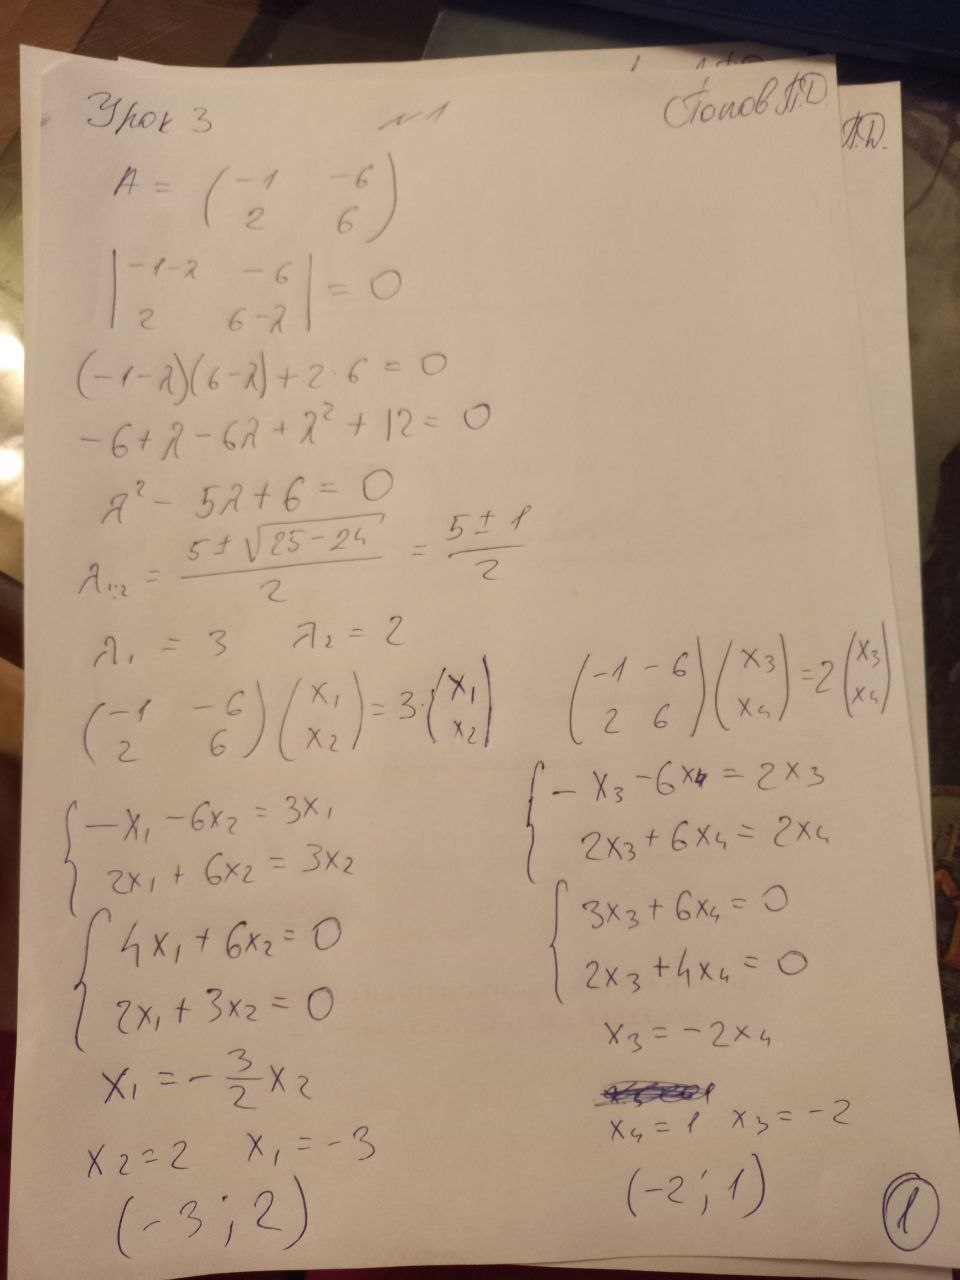 Урок 3 №1 Попов П.Д.
П.Д.
A = (-1 -6
2 6)
|-1-λ -6
2 6-λ| = 0
(-1-λ)(6-λ)+2·6 = 0
-6+λ-6λ+λ²+12 = 0
λ² - 5λ+6 = 0
λ₁,₂ = (5±√(25-24))/2 = (5±1)/2
λ₁ = 3 λ₂ = 2
(-1 -6
2 6)(x₁
x₂) = 3·(x₁
x₂)
{-x₁ - 6x₂ = 3x₁
2x₁ + 6x₂ = 3x₂
{4x₁ + 6x₂ = 0
2x₁ + 3x₂ = 0
x₁ = -3/2 x₂
x₂ = 2 x₁ = -3
(-3 ; 2)
(-1 -6
2 6)(x₃
x₄) = 2(x₃
x₄)
{-x₃ - 6x₄ = 2x₃
2x₃ + 6x₄ = 2x₄
{3x₃ + 6x₄ = 0
2x₃ + 4x₄ = 0
x₃ = -2x₄
x₄ = 1 x₃ = -2
(-2 ; 1)
1